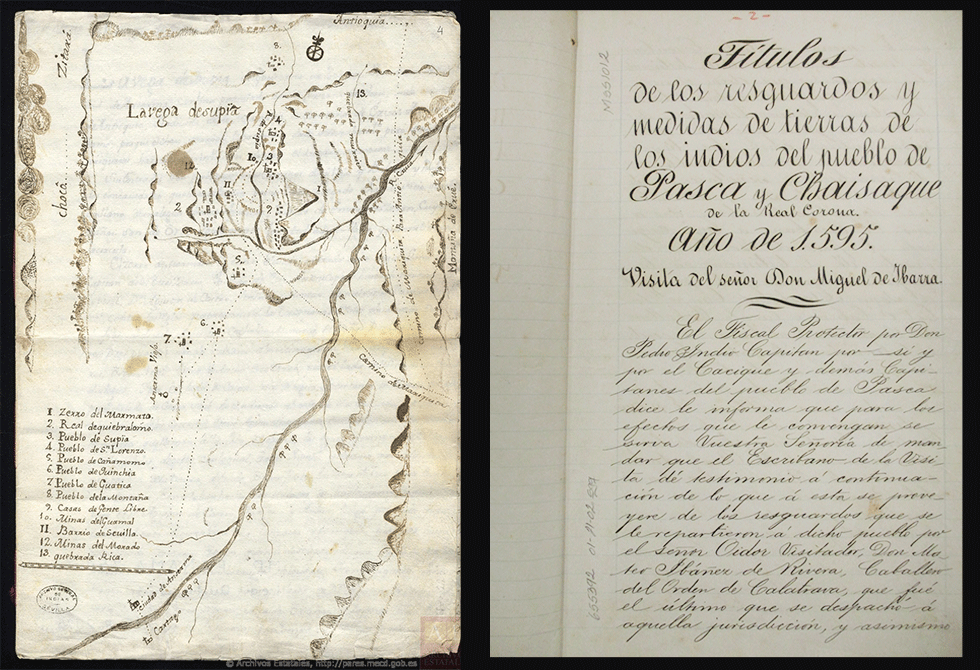 Antioquia.....
4
Zitará
chocó.....
8.
7
La vega de supia
13.
12.
10.
11
2
1
3
9
5
6.
7.
Anserma Viejo
8
Camino de Mariquita
Montaña de
1 Zerro del Marmato.
2. Real de quiebralomo.
3. Pueblo de Supia
4. Pueblo de Sn. Lorenzo.
5. Pueblo de Cañamomo
6. Pueblo de Quinchia
7. Pueblo de Guatica
8. Pueblo de la Montaña
9. Casas de Gente Libre.
10. Minas del Guamal
11. Barrio de Sevilla.
12. Minas del Morado
13. quebrada Rica.
Ciudad de Anserma
Cartago
ARCHIVO GENERAL
DE
INDIAS
SEVILLA
© Archivos Estatales, http://pares.mecd.gob.es
- 2 -
Títulos
de los resguardos y
medidas de tierras de
los indios del pueblo de
Pasca y Chaisaque
de la Real Corona.
Año de 1595.
Visita del señor Don Miguel de Ibarra.
El Fiscal Protector por Don
Pedro Indio Capitan por si y
por el Cacique y demás Capi-
tanes del pueblo de Pasca
dice le informa que para los
efectos que le convengan se
serva Vuestra Señoría de man
dar que el Escribano de la Visi
ta de testimonio á continua-
ción de lo que á esta se preve-
yere de los resguardos que se
le repartieron á dicho pueblo por
el Señor Oidor Visitador, Don Ma-
teo Ibáñez de Rivera, Caballero
del Orden de Calatrava, que fué
el último que se despachó á
aquella jurisdicción, y asimismo